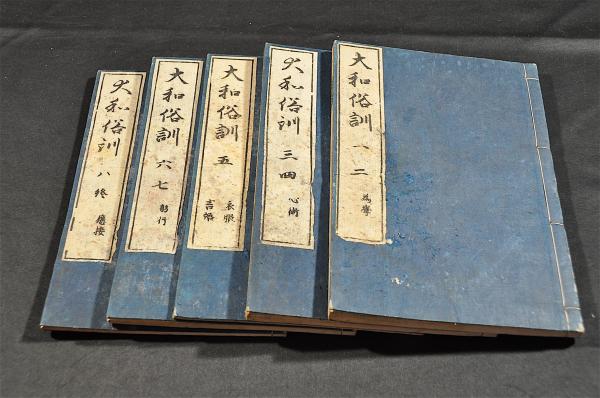 大和俗訓 一 二
為學
大和俗訓 三 四
心術
大和俗訓 五
衣服
言語
大和俗訓 六 七
躬行
大和俗訓 八 終
應接